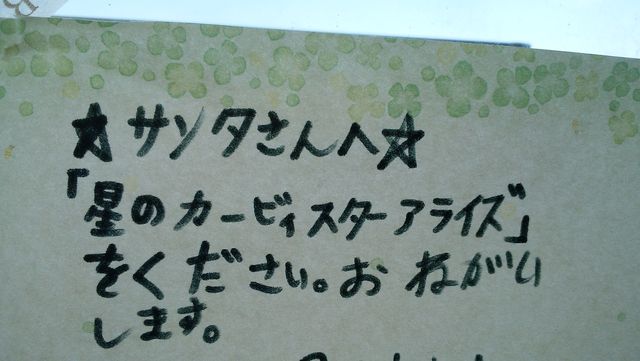 ★サンタさんへ★
「星のカービィスターアライズ」
をください。おねがい
します。